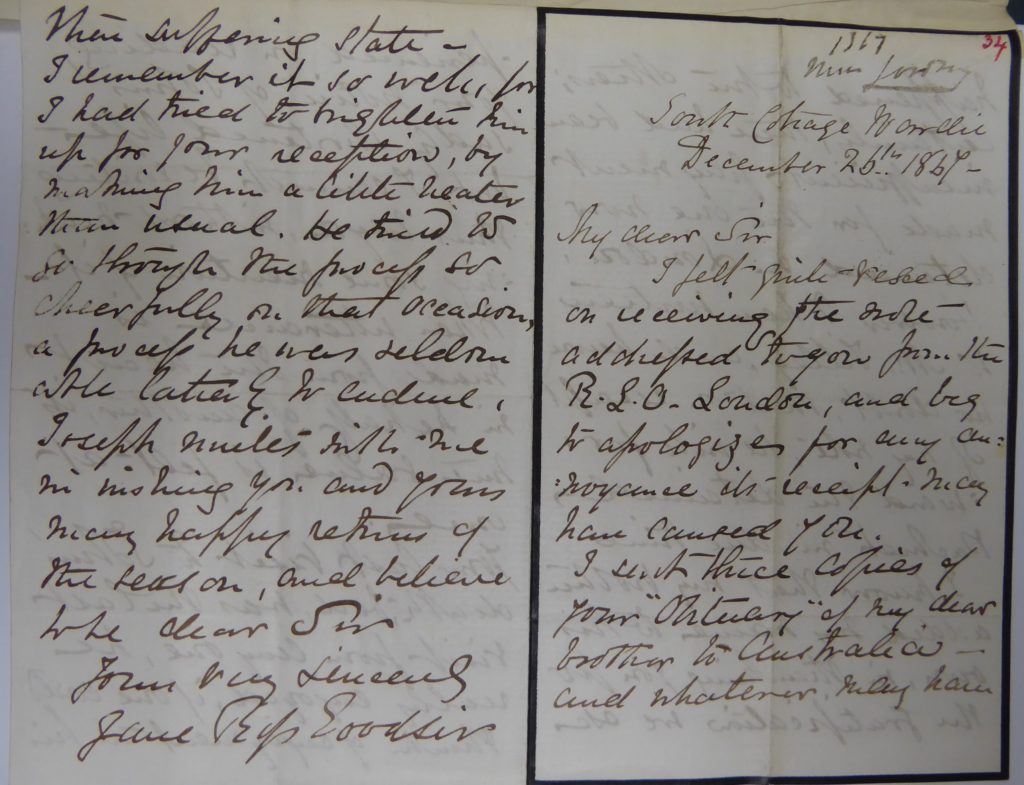 then suffering state –
I remember it so well, for
I had tried to brighten him
up for your reception, by
making him a little neater
than usual. He tried to
go through the process so
cheerfully on that occasion,
a process he was seldom
able latterly to endure.
Joseph unites with me
in wishing you and yours
many happy returns of
the season, and believe
dear Sir
Yours very sincerely
Jane Ross Goodsir
34
1867
Miss Goodsir
South Cottage Wardie
December 26th 1867–
My dear Sir
I felt quite vexed
on receiving the note
addressed to you from the
R.L.O. London, and beg
to apologize for any an=
=noyance its receipt may
have caused you.
I sent three copies of
your "Obituary" of my dear
brother to Australia –
and whatever may have